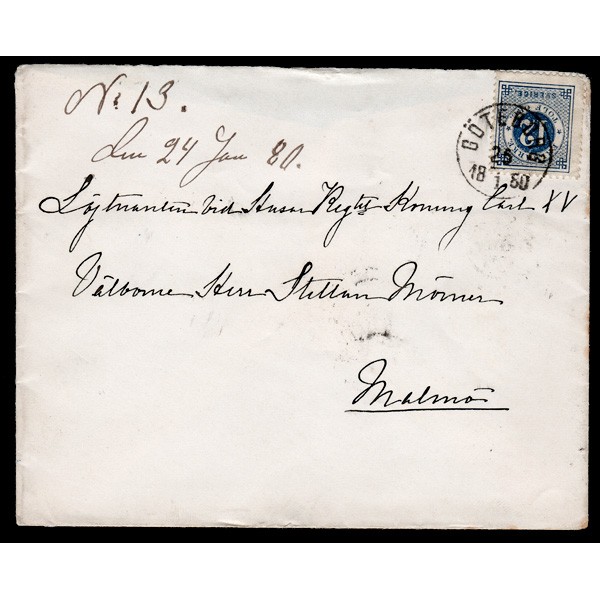 No 13.
Den 24 Jan 80.
Löjtnanten vid Husar Regtet Konung Carl XV
Välborne Herr Stellan Mörner
Malmö
GÖTEBORG
25
18 1 80
SVERIGE
12
TOLF